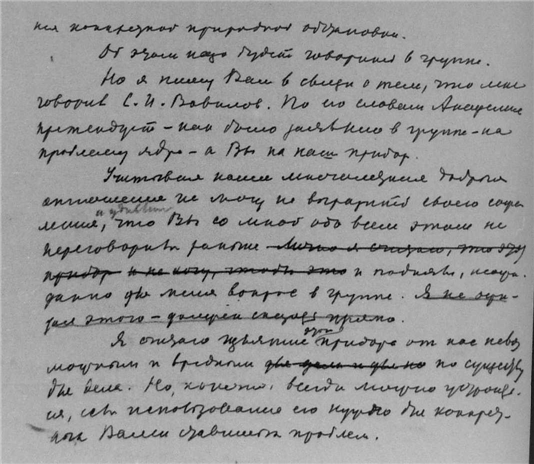 ния конкретной природной обстановки.
Об этом надо будет говорить в группе.
Но я пишу Вам в связи о том, что мне
говорил С. И. Вавилов. По его словам Академия
претендует – как было заявлено в группе – на
проблему ядра – а Вы на наш прибор.
Учитывая наши многолетние добрые
отношения не могу не выразить своего сожа
ления, и удивления что Вы со мной обо всем этом не
переговорили раньше
прибор и не могу, чтобы это и подняв, неожи
данно для меня вопрос в группе. Я не ожи-
дал этого – прямо.
Я считаю изъятие этого прибора от нас невоз
можным и вредным по существу
для дела. Но, конечно, всегда можно уговорить
ся, использование его нужно для конкрет
ных Вами ставимых проблем.